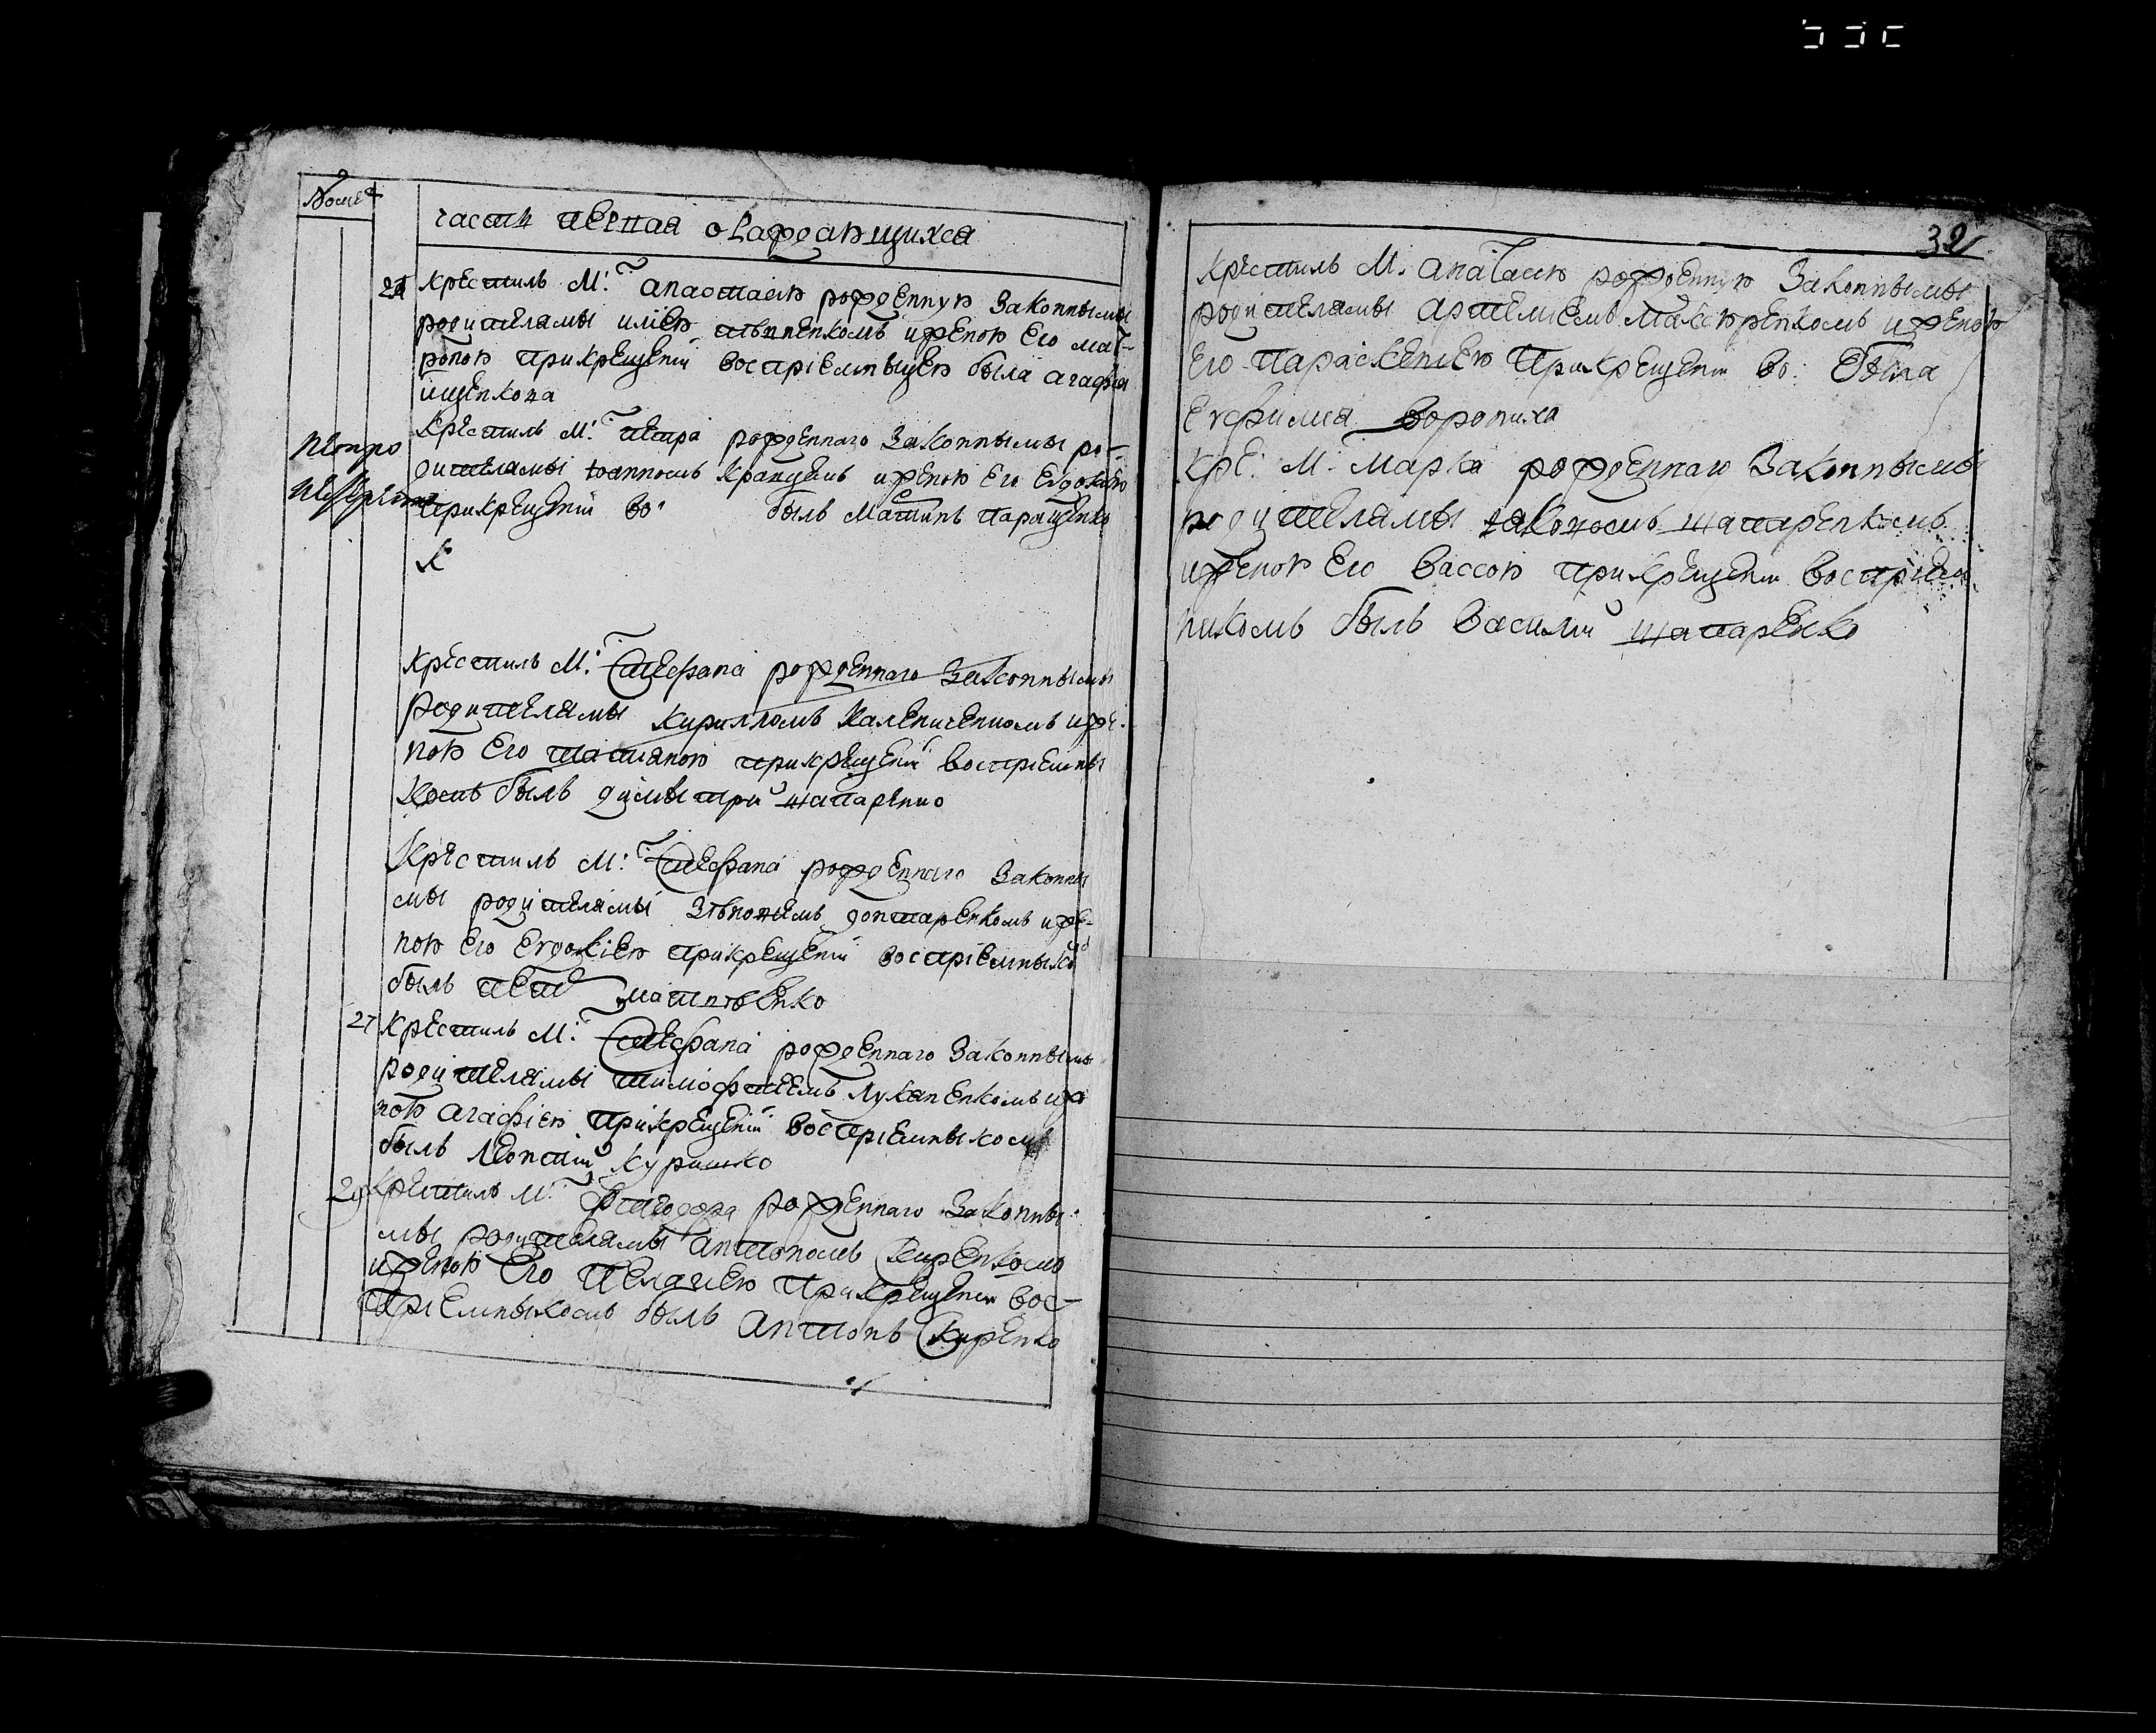 часть первая о раждающихся
крестилъ М: анастасию рожденную законными
родителами илиею ивненкомъ и женою его мат-
роною при крещении восприемницею была агафия
ищенкова
крестилъ М: петра рожденнаго законными ро-
дителами иоанномъ кравцемъ и женою его евдокиею
при крещении во: былъ мартинъ паращенко
К
крестилъ М: стефана рожденнаго законными
родителами кирилломъ калениченкомъ и же-
ною его татианою при крещении восприемни
комъ былъ димитрий шапаренко
крестилъ М: стефана рожденнаго законны
ми родителами зѣновиемъ гонтаренкомъ и же-
ною его евдокиею при крещении восприемнико
былъ петръ матвѣенко
27 крестилъ М: стефана рожденнаго законными
родителами тимофеемъ луханенкомъ и же
ною агафиею при крещении восприемникомъ
былъ леонтий куришко
29 крестилъ М: феодора рожденнаго законны
ми родителами антономъ скиренкомъ
и женою его пелагиею при крещении вос-
приемникомъ былъ антонъ скиренко
32
крестилъ М: анастасию рожденную законными
родителами артемиемъ максюренкомъ и женою
его параскевиею при крещении во: была
евфимия ворониха
кре: М: марка рожденнаго законными
родителами иаковомъ шапаренкомъ
и женою его вассою при крещении восприем
никомъ былъ василий шапаренко